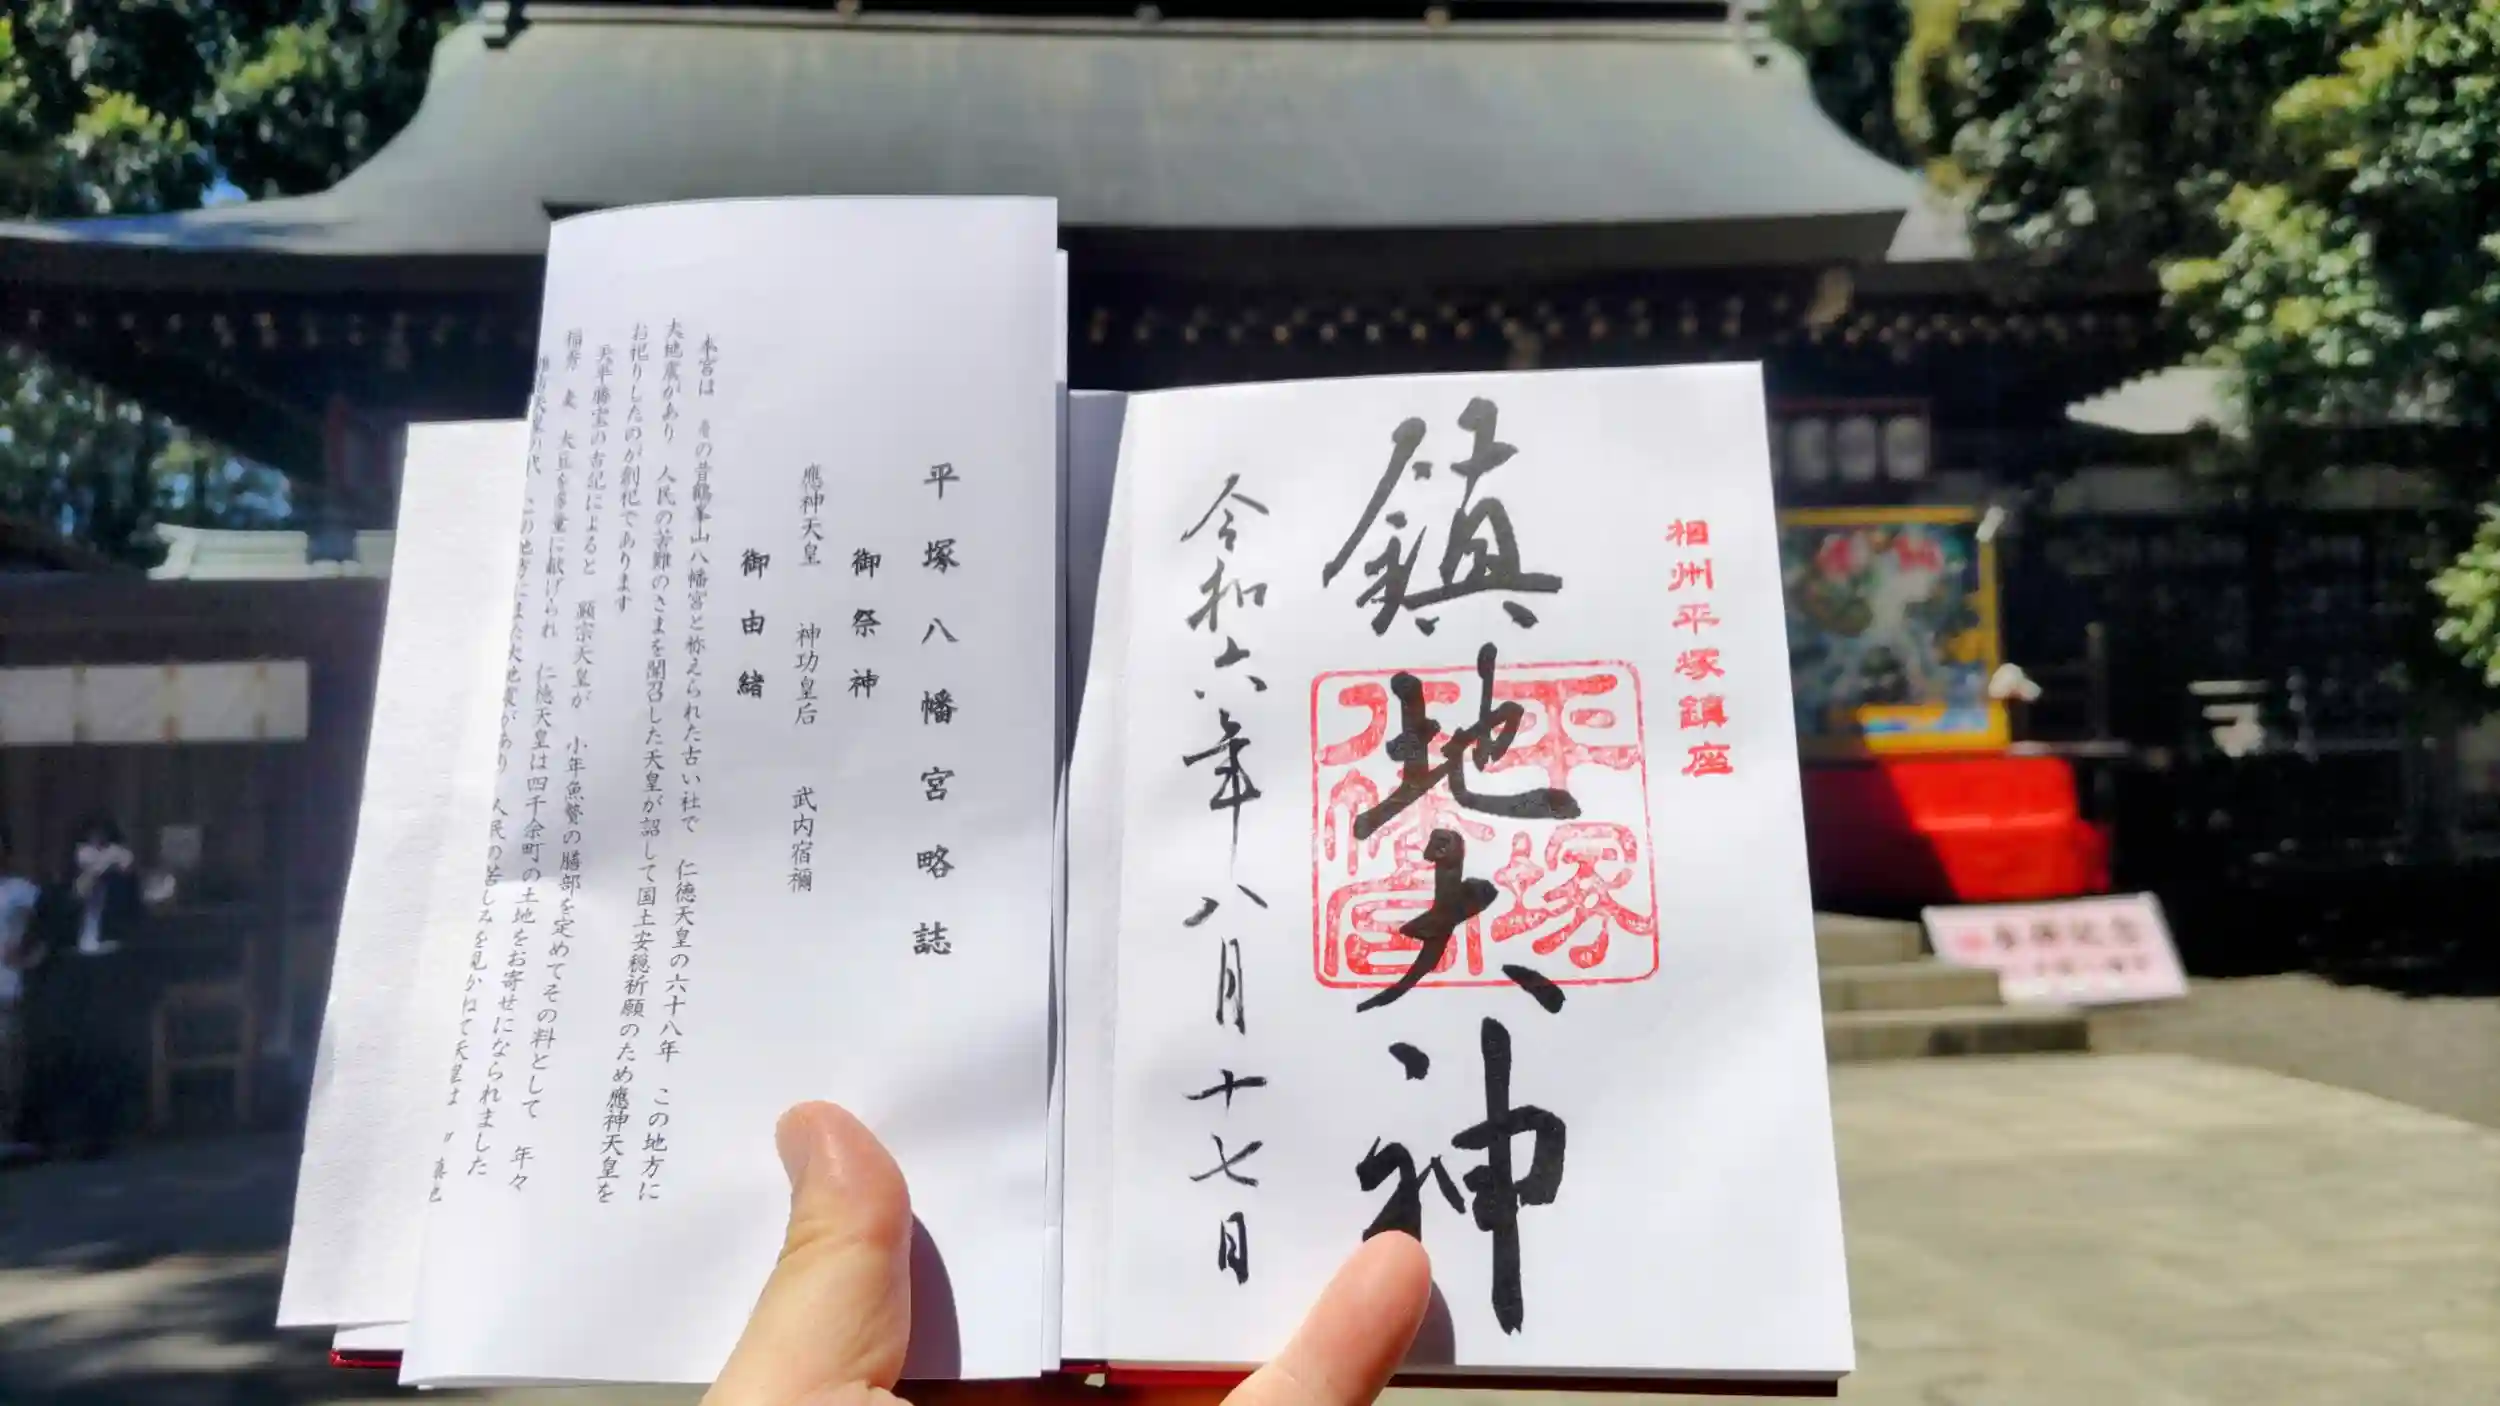 相州平塚鎮座
鎮地大神
平塚八幡宮
令和六年八月十七日
平塚八幡宮略誌
御祭神
應神天皇　神功皇后　武内宿禰
御由緒
本宮は　の昔鶴峯山八幡宮と称えられた古い社で　仁徳天皇の六十八年　この地方に
大地震があり　人民の苦難のさまを聞召した天皇が詔して国土安穏祈願のため應神天皇を
お祀りしたのが創祀であります
天平勝宝の古記によると　顕宗天皇が　小年魚贄の膳部を定めてその料として　年々
稲　麦　大豆を多量に献げられ　仁徳天皇は四千余町の土地をお寄せになられました
天皇の代　この地方にまた大地震があり　人民の苦しみを見かねて天皇は　〃真